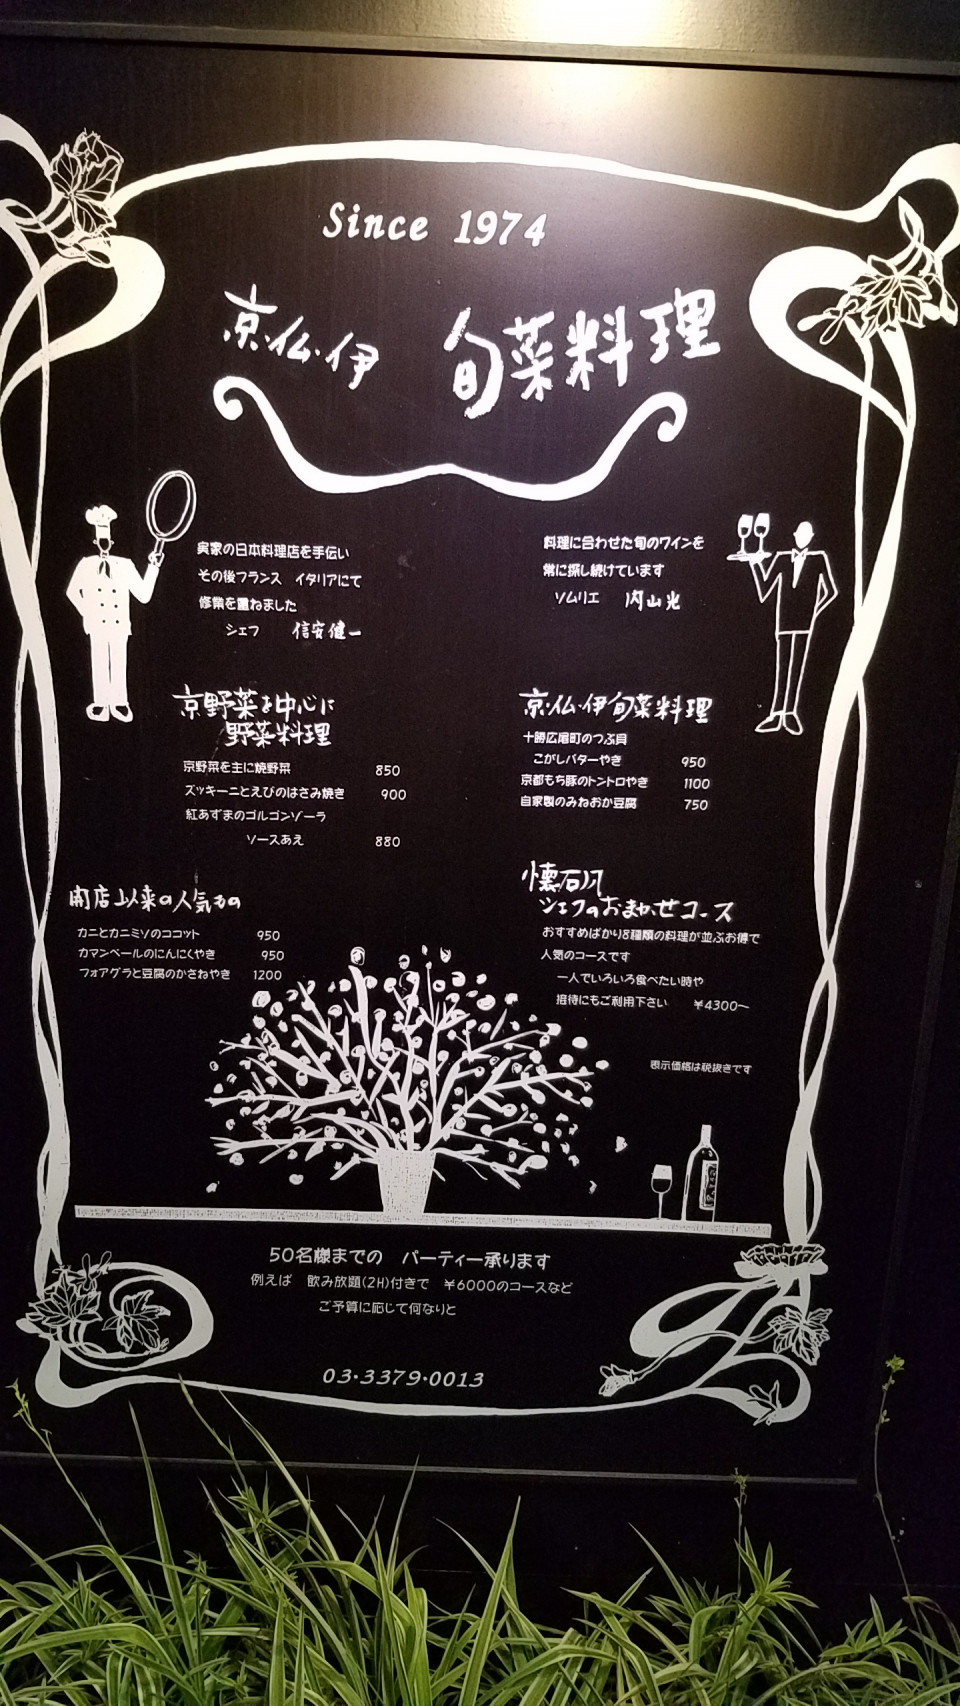 Since 1974
京・仏・伊 旬菜料理
実家の日本料理店を手伝い
その後フランス イタリアにて
修業を重ねました
シェフ 信安健一
料理に合わせた旬のワインを
常に探し続けています
ソムリエ 内山光
京野菜を中心に
野菜料理
京野菜を主に焼野菜 850
ズッキーニとえびのはさみ焼き 900
紅あずまのゴルゴンゾーラ
ソースあえ 880
京・仏・伊旬菜料理
十勝広尾町のつぶ貝
こがしバターやき 950
京都もち豚のトントロやき 1100
自家製のみねおか豆腐 750
開店以来の人気もの
カニとカニミソのココット 950
カマンベールのにんにくやき 950
フォアグラと豆腐のかさねやき 1200
懐石風
シェフのおまかせコース
おすすめばかり8種類の料理が並ぶお得で
人気のコースです
一人でいろいろ食べたい時や
接待にもご利用下さい ¥4300〜
表示価格は税抜きです
50名様までの パーティー承ります
例えば 飲み放題(2H)付きで ¥6000のコースなど
ご予算に応じて何なりと
03・3379・0013